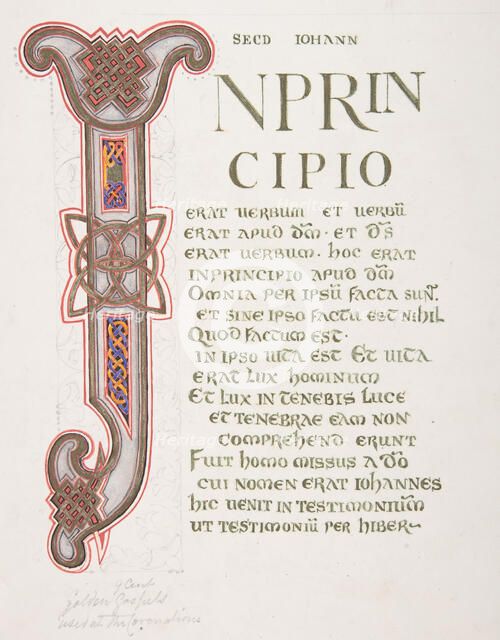 SECD IOHANN
INPRIN
CIPIO
ERAT UERBUM ET UERBŪ
ERAT APUD DM̄ · ET DS̄
ERAT UERBUM · hOC ERAT
INPRINCIPIO APUD DM̄
OMNIA PER IPSŪ FACTA SUN̄T
ET SINE IPSO FACTŪ EST NIhIL
QUOD FACTUM EST ·
IN IPSO UITA EST ET UITA
ERAT LUX hOMINUM
ET LUX IN TENEBIS LUCE
ET TENEBRAE EAM NON
COMPREhENDERUNT
FUIT hOMO MISSUS A DŌ
CUI NOMEN ERAT IOhANNES
hIC UENIT IN TESTIMONIUM
UT TESTIMONIŪ PER hIBER
9 Cent
golden Gospels
used at the Coronations